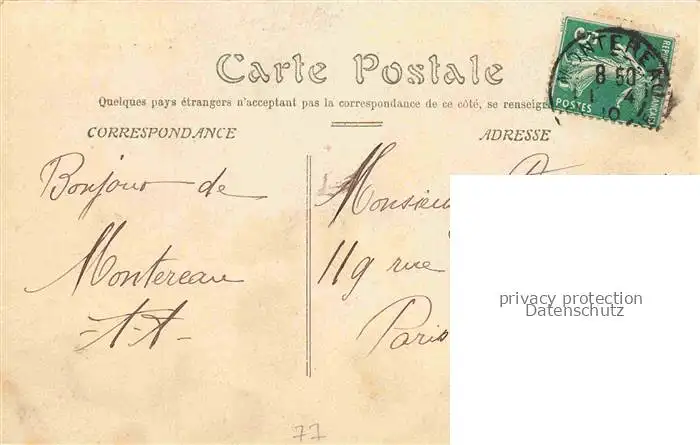 Carte Postale
Quelques pays étrangers n'acceptant pas la correspondance de ce côté, se renseign
CORRESPONDANCE
ADRESSE
Bonjour de
Montereau
Monsieu
119 rue
Paris
POSTES
MONTEREAU
8 50
privacy protection
Datenschutz
77